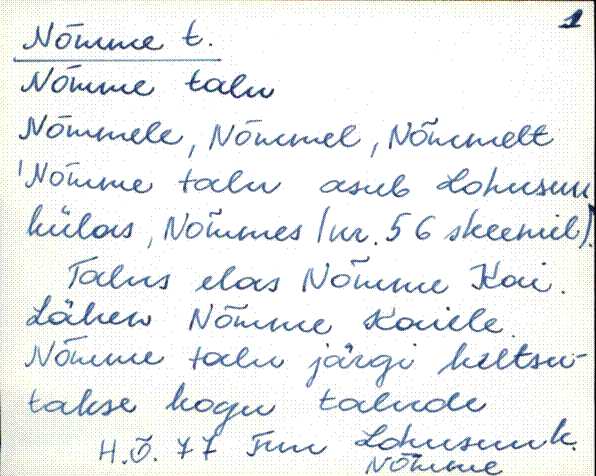 1
Nõmme t.
Nõmme talu
Nõmmele, Nõmmel, Nõmmelt
Nõmme talu asub Lohusuu
külas, Nõmmes (nr. 56 skeemil).
Talus elas Nõmme Kai.
Lähen Nõmme Kaiele.
Nõmme talu järgi hüütsu-
takse kogu talude
H.Õ. 77 Trm Lohusuu k.
Nõmme